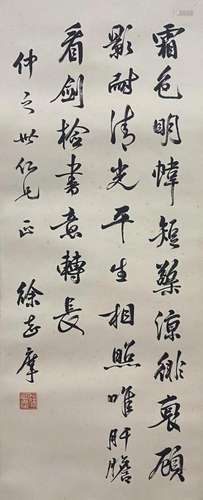 霜色明幃短檠涼徘裏顧
影耐清光平生相照唯肝膽
看劍檢書意轉長
仲之世仁兄正 徐志摩